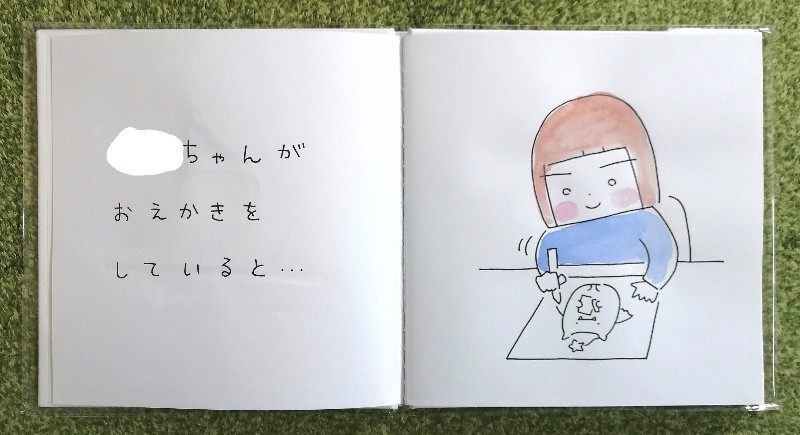 ちゃんが
おえかきを
していると…